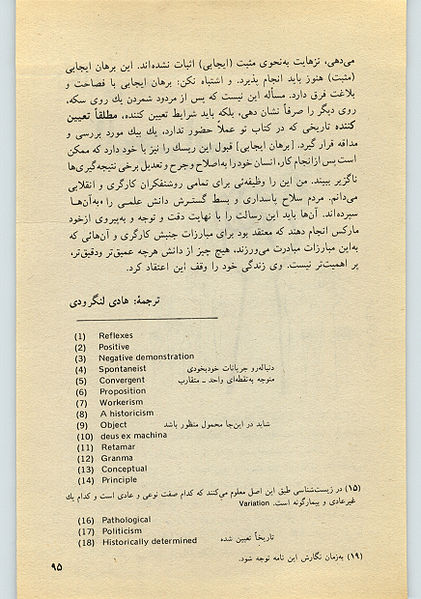 می‌دهی، نزهایت به‌نحوی مثبت (ایجابی) اثبات نشده‌اند. این برهان ایجابی
(مثبت) هنوز باید انجام پذیرد. و اشتباه نکن: برهان ایجابی با فصاحت و
بلاغت فرق دارد. مسأله این نیست که پس از مردود شمردن یك روی سکه،
روی دیگر را صرفاً نشان دهی، بلکه باید شرایط تعیین کننده، مطلقاً تعیین
کنندهٔ تاریخی که در کتاب تو عملاً حضور ندارد، یك بیك مورد بررسی و
مداقه قرار گیرد. [برهان ایجابی] قبول این ریسك را نیز با خود دارد که ممکن
است پس از انجام کار، انسان خود را به‌اصلاح و جرح و تعدیل برخی نتیجه‌گیری‌ها
ناگزیر ببیند. من این را وظیفه‌ئی برای تمامی روشنفکران کارگری و انقلابی
می‌دانم. مردم سلاح پاسداری و بسط گسترش دانش علمی را به‌آن‌ها
سپرده‌اند. آن‌ها باید این رسالت را با نهایت دقت و توجه و به‌پیروی از خود
مارکس انجام دهند که معتقد بود برای مبارزات جنبش کارگری و آن‌هائی که
به‌این مبارزات مبادرت می‌ورزند، هیچ چیز از دانش هرچه عمیق‌تر و دقیق‌تر،
پر اهمیت‌تر نیست. وی زندگی خود را وقف این اعتقاد کرد.
ترجمهٔ: هادی لنگرودی
(1) Reflexes
(2) Positive
(3) Negative demonstration
(4) Spontaneist دنباله‌رو جریانات خودبخودی
(5) Convergent متوجه به‌نقطه‌ای واحد ـ متقارب
(6) Proposition
(7) Workerism
(8) A historicism
(9) Object شاید در این‌جا محمول منظور باشد
(10) deus ex machina
(11) Retamar
(12) Granma
(13) Conceptual
(14) Principle
(۱۵) در زیست‌شناسی طبق این اصل معلوم می‌کنند که کدام صفت نوعی و عادی است و کدام یك
غیرعادی و بیمارگونه است. Variation
(16) Pathological
(17) Politicism
(18) Historically determined تاریخاً تعیین شده
(۱۹) به‌زمان نگارش این نامه توجه شود.
۹۵